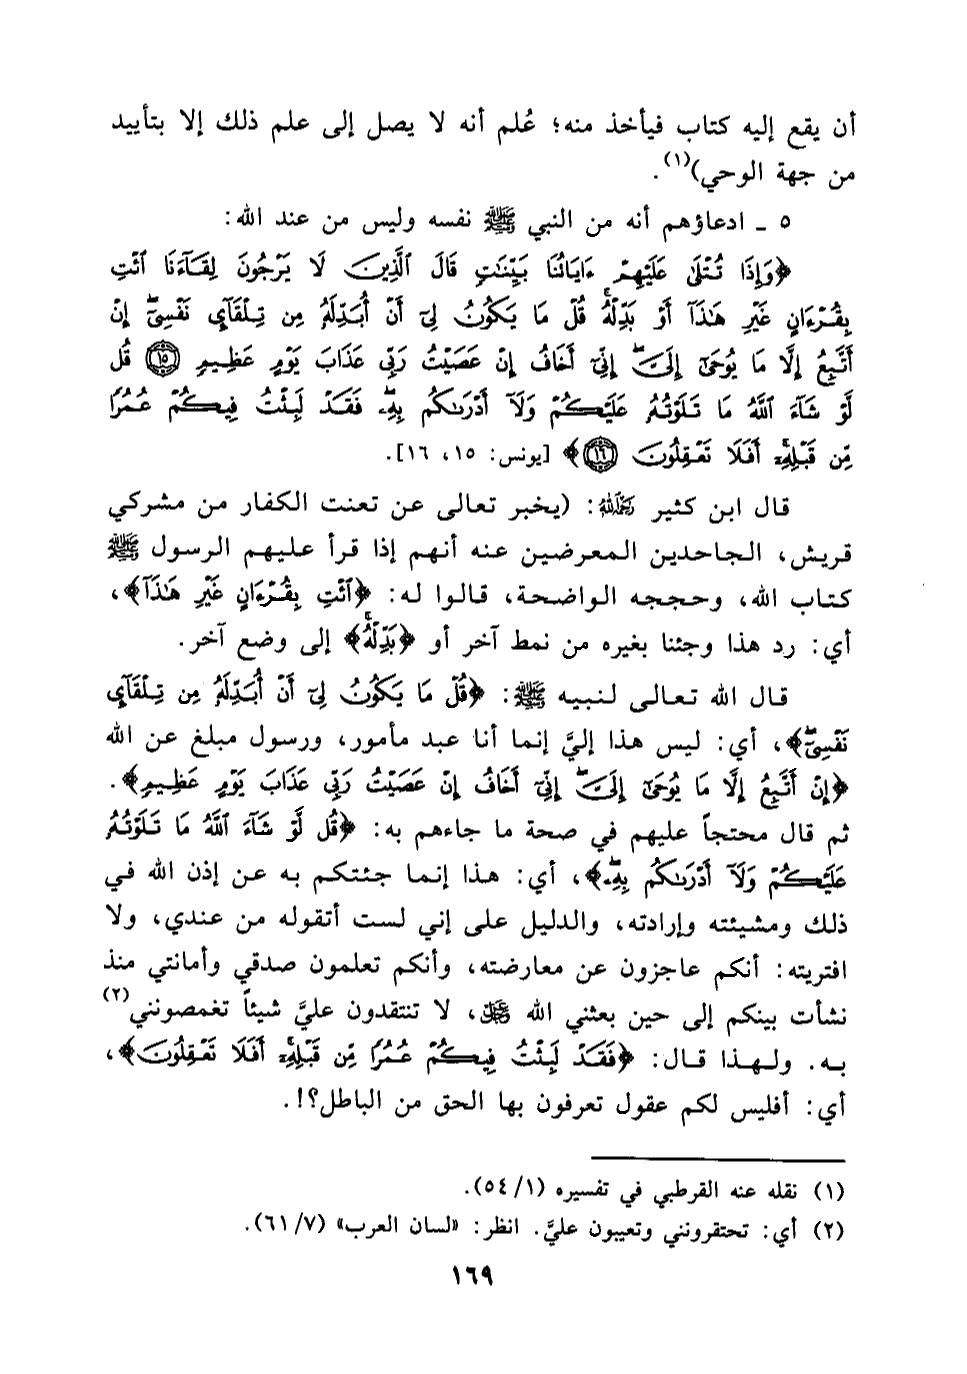 أن يقع إليه كتاب فيأخذ منه؛ عُلم أنه لا يصل إلى علم ذلك إلا بتأييد
من جهة الوحي)(١).
٥ ـ ادعاؤهم أنه من النبي ﷺ نفسه وليس من عند الله:
﴿وَإِذَا تُتْلَىٰ عَلَيْهِمْ ءَايَاتُنَا بَيِّنَٰتٍ قَالَ ٱلَّذِينَ لَا يَرْجُونَ لِقَآءَنَا ٱئْتِ
بِقُرْءَانٍ غَيْرِ هَٰذَآ أَوْ بَدِّلْهُ ۚ قُلْ مَا يَكُونُ لِىٓ أَنْ أُبَدِّلَهُۥ مِن تِلْقَآئِ نَفْسِىٓ ۖ إِنْ
أَتَّبِعُ إِلَّا مَا يُوحَىٰٓ إِلَىَّ ۖ إِنِّىٓ أَخَافُ إِنْ عَصَيْتُ رَبِّى عَذَابَ يَوْمٍ عَظِيمٍ ﴿١٥﴾ قُل
لَّوْ شَآءَ ٱللَّهُ مَا تَلَوْتُهُۥ عَلَيْكُمْ وَلَآ أَدْرَىٰكُم بِهِۦ ۖ فَقَدْ لَبِثْتُ فِيكُمْ عُمُرًا
مِّن قَبْلِهِۦٓ ۚ أَفَلَا تَعْقِلُونَ ﴿١٦﴾﴾ [يونس: ١٥، ١٦].
قال ابن كثير رحمه الله: (يخبر تعالى عن تعنت الكفار من مشركي
قريش، الجاحدين المعرضين عنه أنهم إذا قرأ عليهم الرسول ﷺ
كتاب الله، وحججه الواضحة، قالوا له: ﴿ٱئْتِ بِقُرْءَانٍ غَيْرِ هَٰذَآ﴾،
أي: رد هذا وجئنا بغيره من نمط آخر أو ﴿بَدِّلْهُ ۚ﴾ إلى وضع آخر.
قال الله تعالى لنبيه ﷺ: ﴿قُلْ مَا يَكُونُ لِىٓ أَنْ أُبَدِّلَهُۥ مِن تِلْقَآئِ
نَفْسِىٓ ۖ﴾، أي: ليس هذا إليَّ إنما أنا عبد مأمور، ورسول مبلغ عن الله
﴿إِنْ أَتَّبِعُ إِلَّا مَا يُوحَىٰٓ إِلَىَّ ۖ إِنِّىٓ أَخَافُ إِنْ عَصَيْتُ رَبِّى عَذَابَ يَوْمٍ عَظِيمٍ﴾.
ثم قال محتجاً عليهم في صحة ما جاءهم به: ﴿قُل لَّوْ شَآءَ ٱللَّهُ مَا تَلَوْتُهُۥ
عَلَيْكُمْ وَلَآ أَدْرَىٰكُم بِهِۦ ۖ﴾، أي: هذا إنما جئتكم به عن إذن الله في
ذلك ومشيئته وإرادته، والدليل على إني لست أتقوله من عندي، ولا
افتريته: أنكم عاجزون عن معارضته، وأنكم تعلمون صدقي وأمانتي منذ
نشأت بينكم إلى حين بعثني الله عز وجل، لا تنتقدون عليَّ شيئاً تغمصونني(٢)
به. ولهذا قال: ﴿فَقَدْ لَبِثْتُ فِيكُمْ عُمُرًا مِّن قَبْلِهِۦٓ ۚ أَفَلَا تَعْقِلُونَ﴾،
أي: أفليس لكم عقول تعرفون بها الحق من الباطل؟!.
(١) نقله عنه القرطبي في تفسيره (١/٥٤).
(٢) أي: تحتقرونني وتعيبون عليَّ. انظر: «لسان العرب» (٧/٦١).
١٦٩